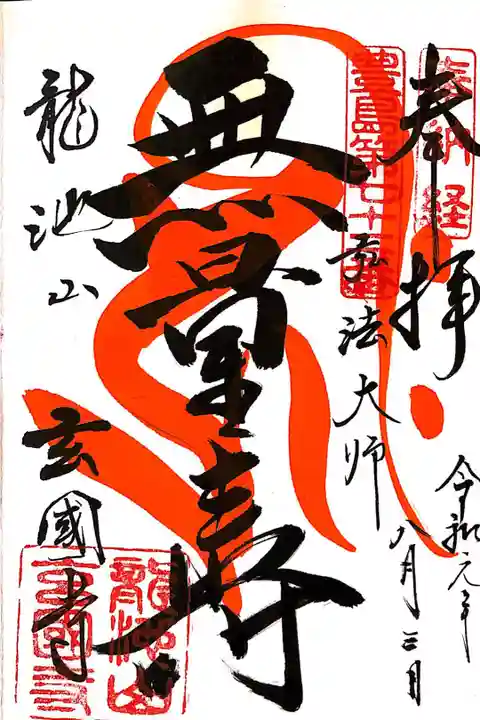 奉拝
奉納経
令和元年
八月三日
豊島第七十番
弘法大師
無量寿
龍池山
玄國寺
龍池山
玄國寺